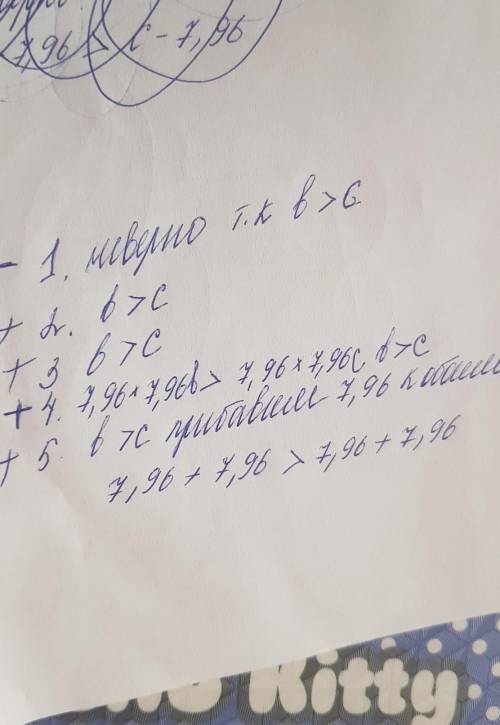 7,96 > c - 7,96
- 1. неверно т.к b > c.
+ 2. b > c
+ 3 b > c
+ 4. 7,96 × 7,96b > 7,96 × 7,96c, b > c
+ 5. b > c прибавим 7,96 к обоим
7,96 + 7,96 > 7,96 + 7,96
Kitty